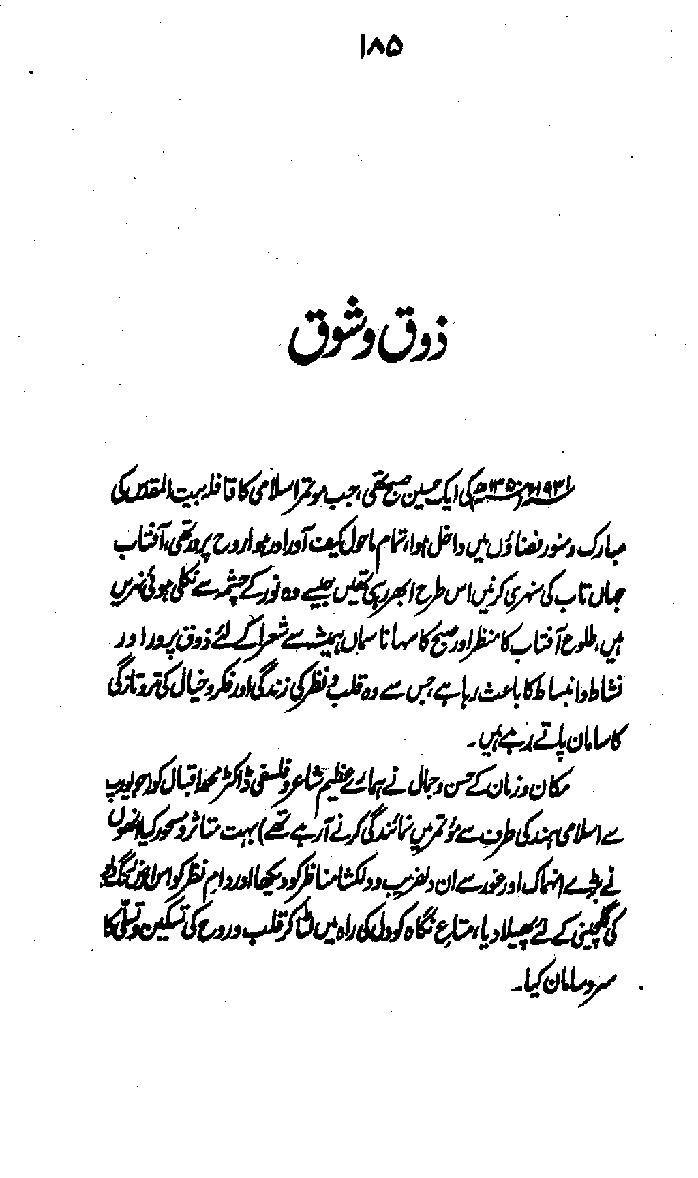 ۱۸۵
ذوق و شوق
۱۹۳۱ء ۱۳۵۰ھ کی ایک حسین صبح تھی، جب موتمر اسلامی کا قافلہ بیت المقدس کی
مبارک و منور فضاؤں میں داخل ہوا، تمام ماحول کیف آور اور ہوا روح پرور تھی، آفتاب
جہاں تاب کی سنہری کرنیں اس طرح ابھر رہی تھیں جیسے وہ نور کے چشمہ سے نکلی ہوئی نہریں
ہیں، طلوع آفتاب کا منظر اور صبح کا سہانا سماں ہمیشہ سے شعرا کے لئے ذوق پرور اور
نشاط و انبساط کا باعث رہا ہے، جس سے وہ قلب و نظر کی زندگی اور فکر و خیال کی تروتازگی
کا سامان پاتے رہے ہیں۔
مکان و زمان کے حسن و جمال نے ہمارے عظیم شاعر و فلسفی ڈاکٹر محمد اقبال کو (جو یورپ
سے اسلامی ہند کی طرف سے مؤتمر میں نمائندگی کرنے آرہے تھے) بہت متاثر و مسحور کیا، انھوں
نے بڑے انہماک اور غور سے ان دلفریب و دلکشا مناظر کو دیکھا اور دام نظر کو اس
کی گلچینی کے لئے پھیلا دیا، متاع نگاہ کو دل کی راہ میں لٹا کر قلب و روح کی تسکین و تسلی کا
سروسامان کیا۔